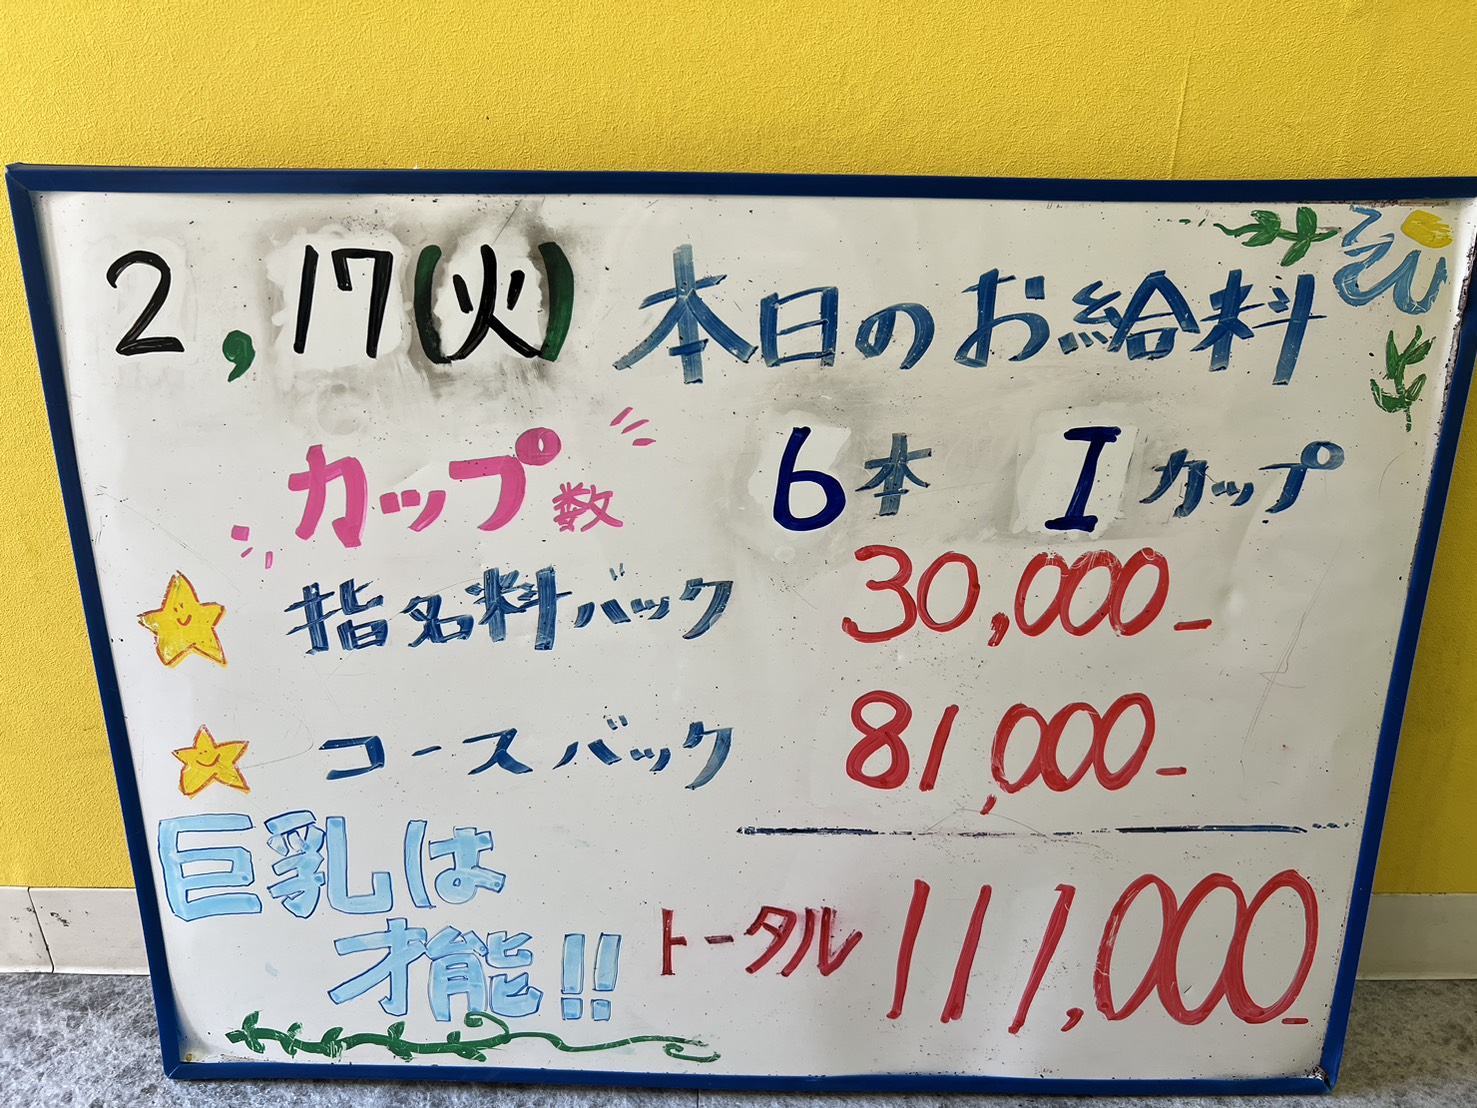 2,17(火) 本日のお給料
カップ数 6本 Iカップ
指名料バック 30,000-
コースバック 81,000-
巨乳は
才能!!
トータル 111,000-